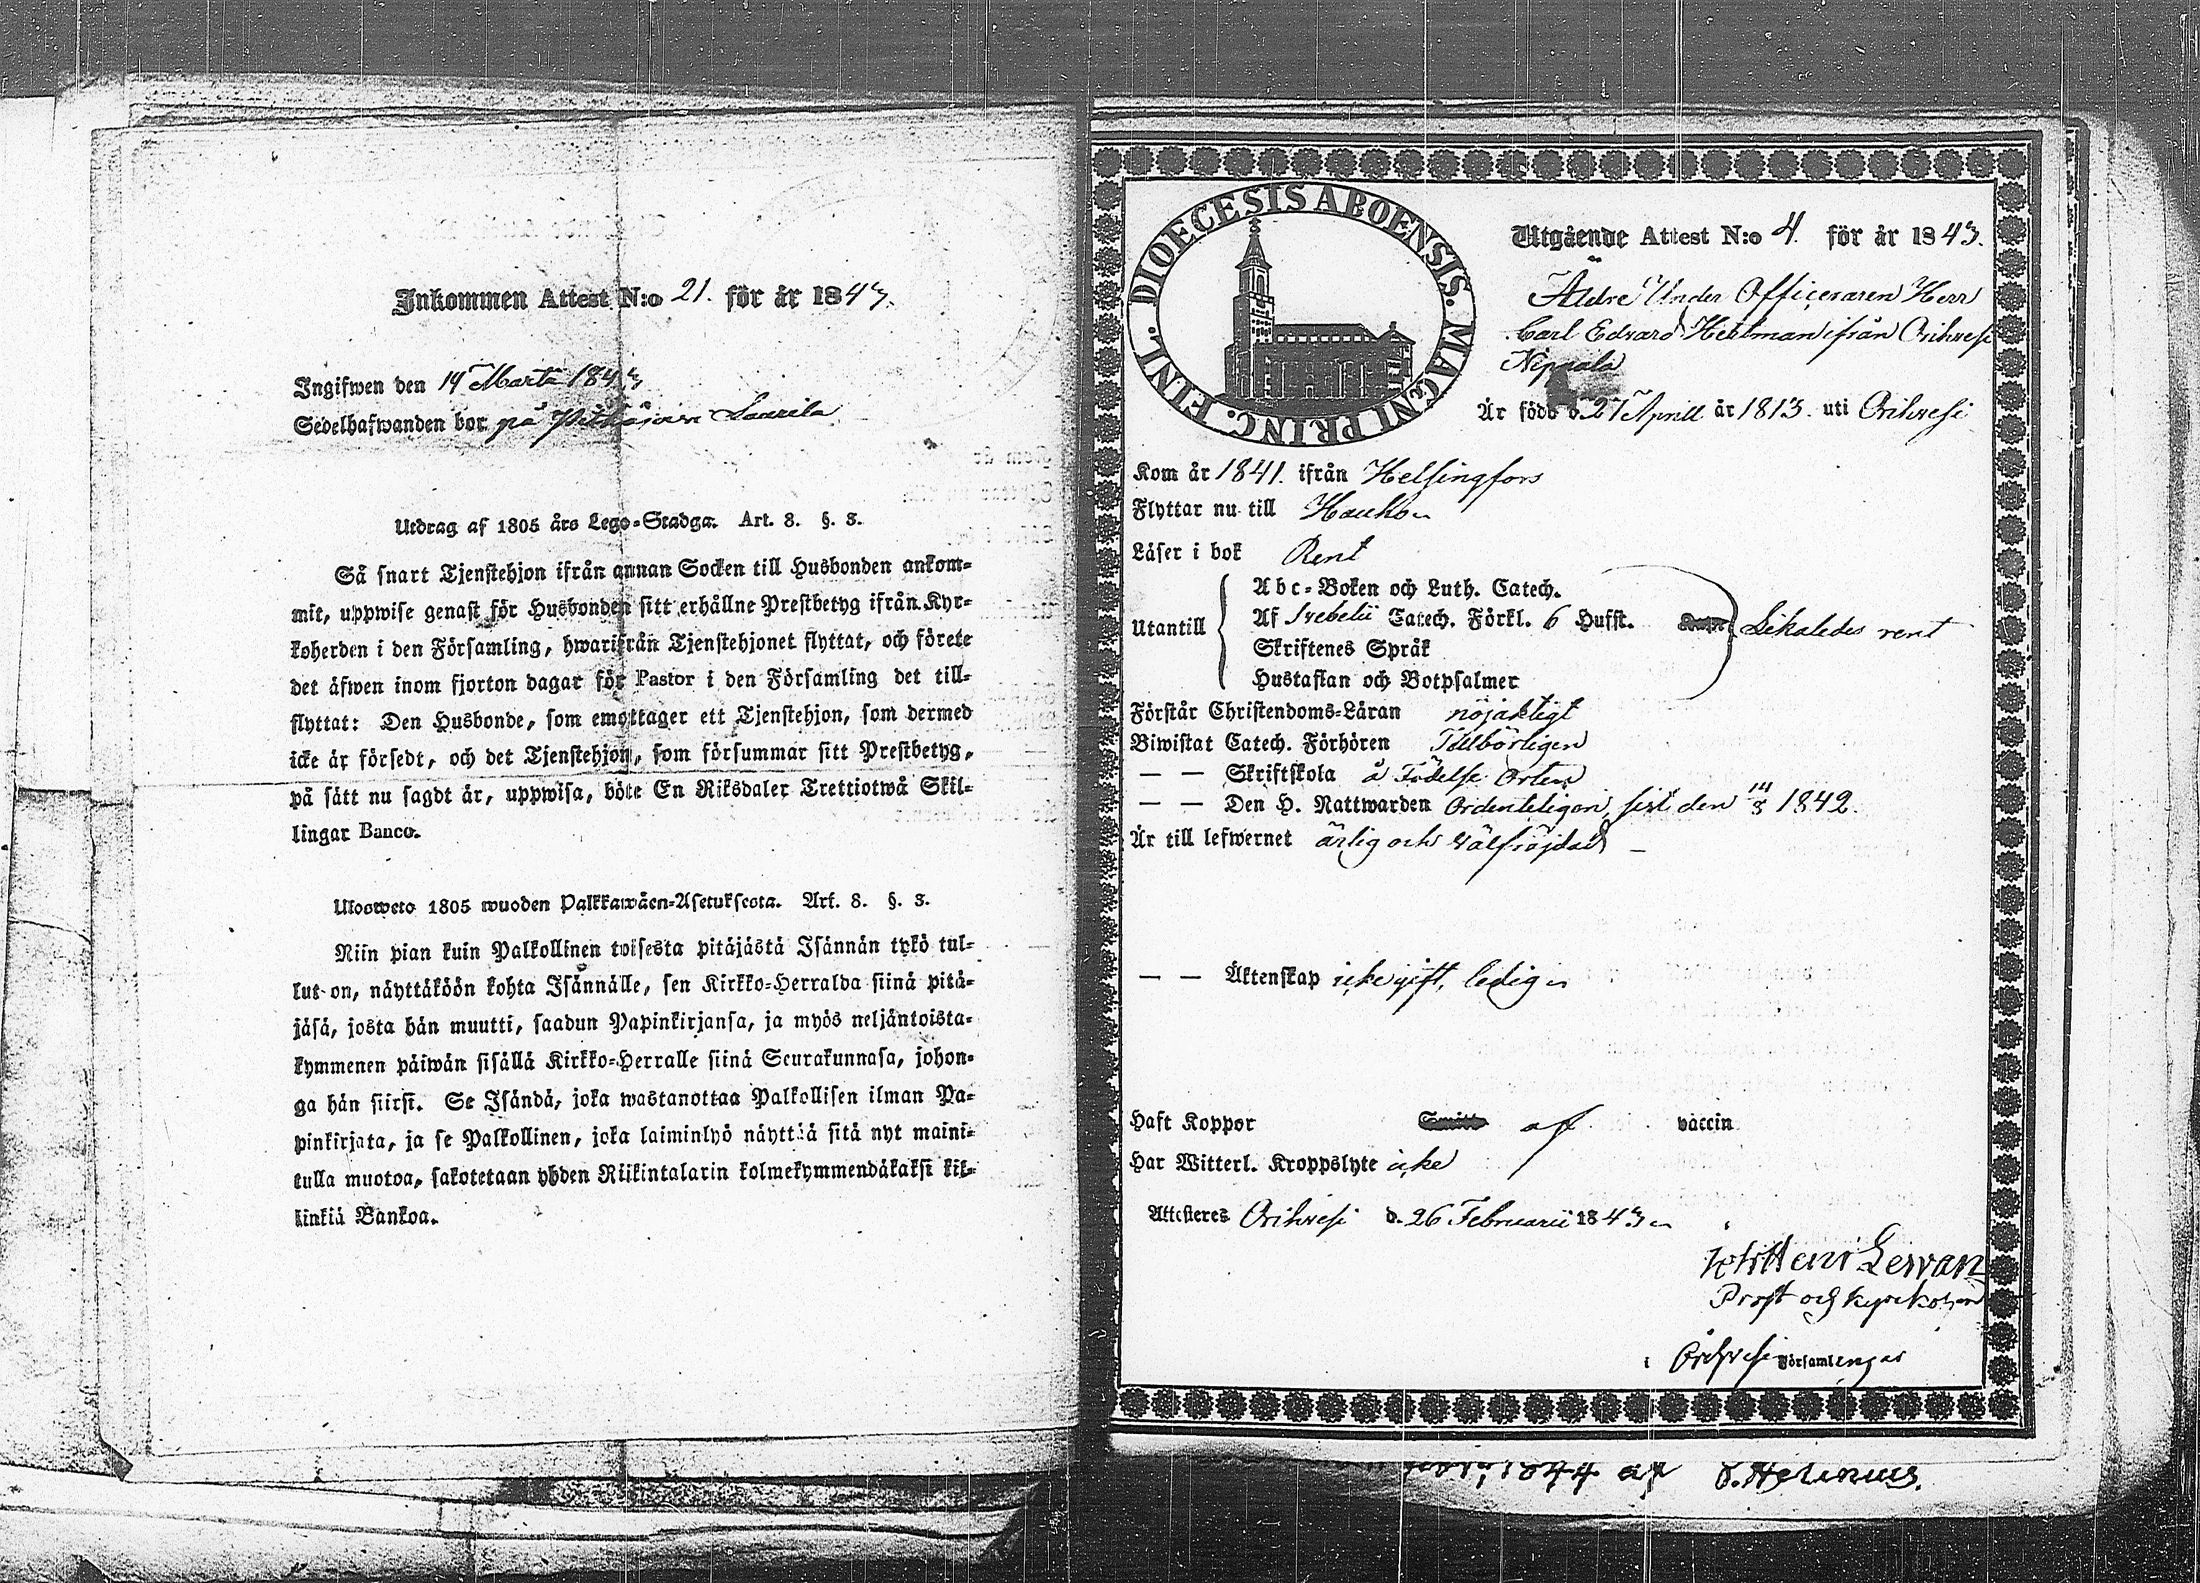 Inkommen Attest N:o 21. för år 1843.
Ingifwen den 14 Martii 1843
Sedelhafwanden bor på Laurila
Utdrag af 1805 års Lego-Stadga. Art. 8. §. 3.
Så snart Tjenstehjon ifrån annan Socken till Husbonden ankom-
mit, uppwise genast för Husbonden sitt erhållne Prestbetyg ifrån Kyr-
koherden i den Församling, hwarifrån Tjenstehjonet flyttat, och förete
det äfwen inom fjorton dagar för Pastor i den Församling det till-
flyttat: Den Husbonde, som emottager ett Tjenstehjon, som dermed
icke är försedt, och det Tjenstehjon, som försummar sitt Prestbetyg,
på sätt nu sagdt är, uppwisa, böte En Riksdaler Trettiotwå Skil-
lingar Banco.
Ulosweto 1805 wuoden Palkkawäen-Asetuksesta. Art. 8. §. 3.
Niin pian kuin Palkollinen toisesta pitäjästä Isännän tykö tul-
lut on, näyttäköön kohta Isännälle, sen Kirkko-Herralda siinä pitä-
jäsä, josta hän muutti, saadun Papinkirjansa, ja myös neljäntoista-
kymmenen päiwän sisällä Kirkko-Herralle siinä Seurakunnasa, johon-
ga hän siirsi. Se Isändä, joka wastanottaa Palkollisen ilman Pa-
pinkirjata, ja se Palkollinen, joka laiminlyö näyttää sitä nyt maini-
tulla muotoa, sakotetaan yhden Riikintalarin kolmekymmendäkaksi kil-
linkiä Bankoa.
DIOECESIS ABOENSIS. MAGNI PRINC. FINL.
Utgående Attest N:o 4. för år 1843.
Äldre Under Officeraren Herr
Carl Edvard Heltman ifrån Orihvesi
Neppala
Är född d. 27 Aprill år 1813. uti Orihvesi
Kom år 1841. ifrån Helsingfors
Flyttar nu till Hauho
Läser i bok Rent
Utantill
Abc-Boken och Luth. Catech.
Af Svebelii Catech. Förkl. 6 Hufst. Likaledes rent
Skriftenes Språk
Hustaflan och Botpsalmer
Förstår Christendoms-Läran nöjaktigt
Biwistat Catech. Förhören Tillbörligen
— — Skriftskola å Födelse Orten
— — Den H. Nattwarden Ordenteligen, sist den 14/8 1842.
Är till lefwernet ärlig och välfräjdad —
— — Äktenskap icke gift, ledig
Haft Koppor af vaccin
Har Witterl. Kroppslyte icke
Attesteres Orihvesi d. 26 Februarii 1843
Henr Lerran
Prost och kyrkoherde
i Orihvesi Församlingar
1844 af S. Helenius.